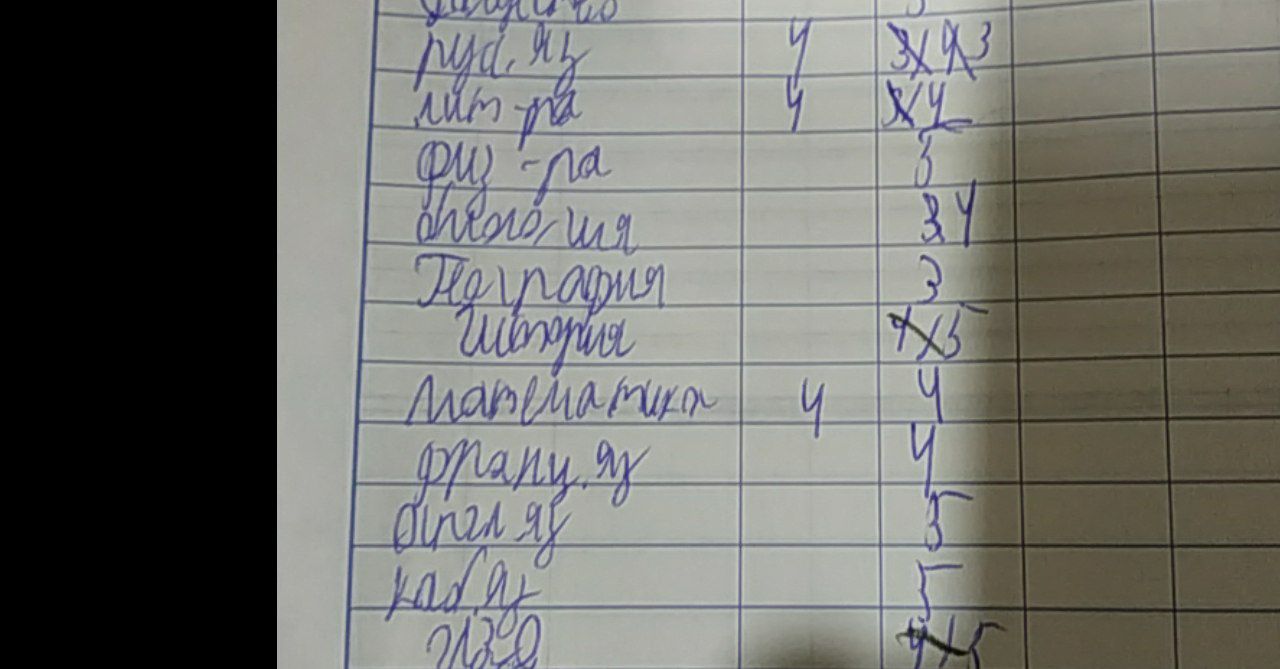 рус. яз 4 3 4 3
лит-ра 4 3 4
физ-ра 5
биология 3 4
География 3
История 4 5
математика 4 4
франц. яз 4
англ яз 5
каб. яз 5
ИЗО 4 5